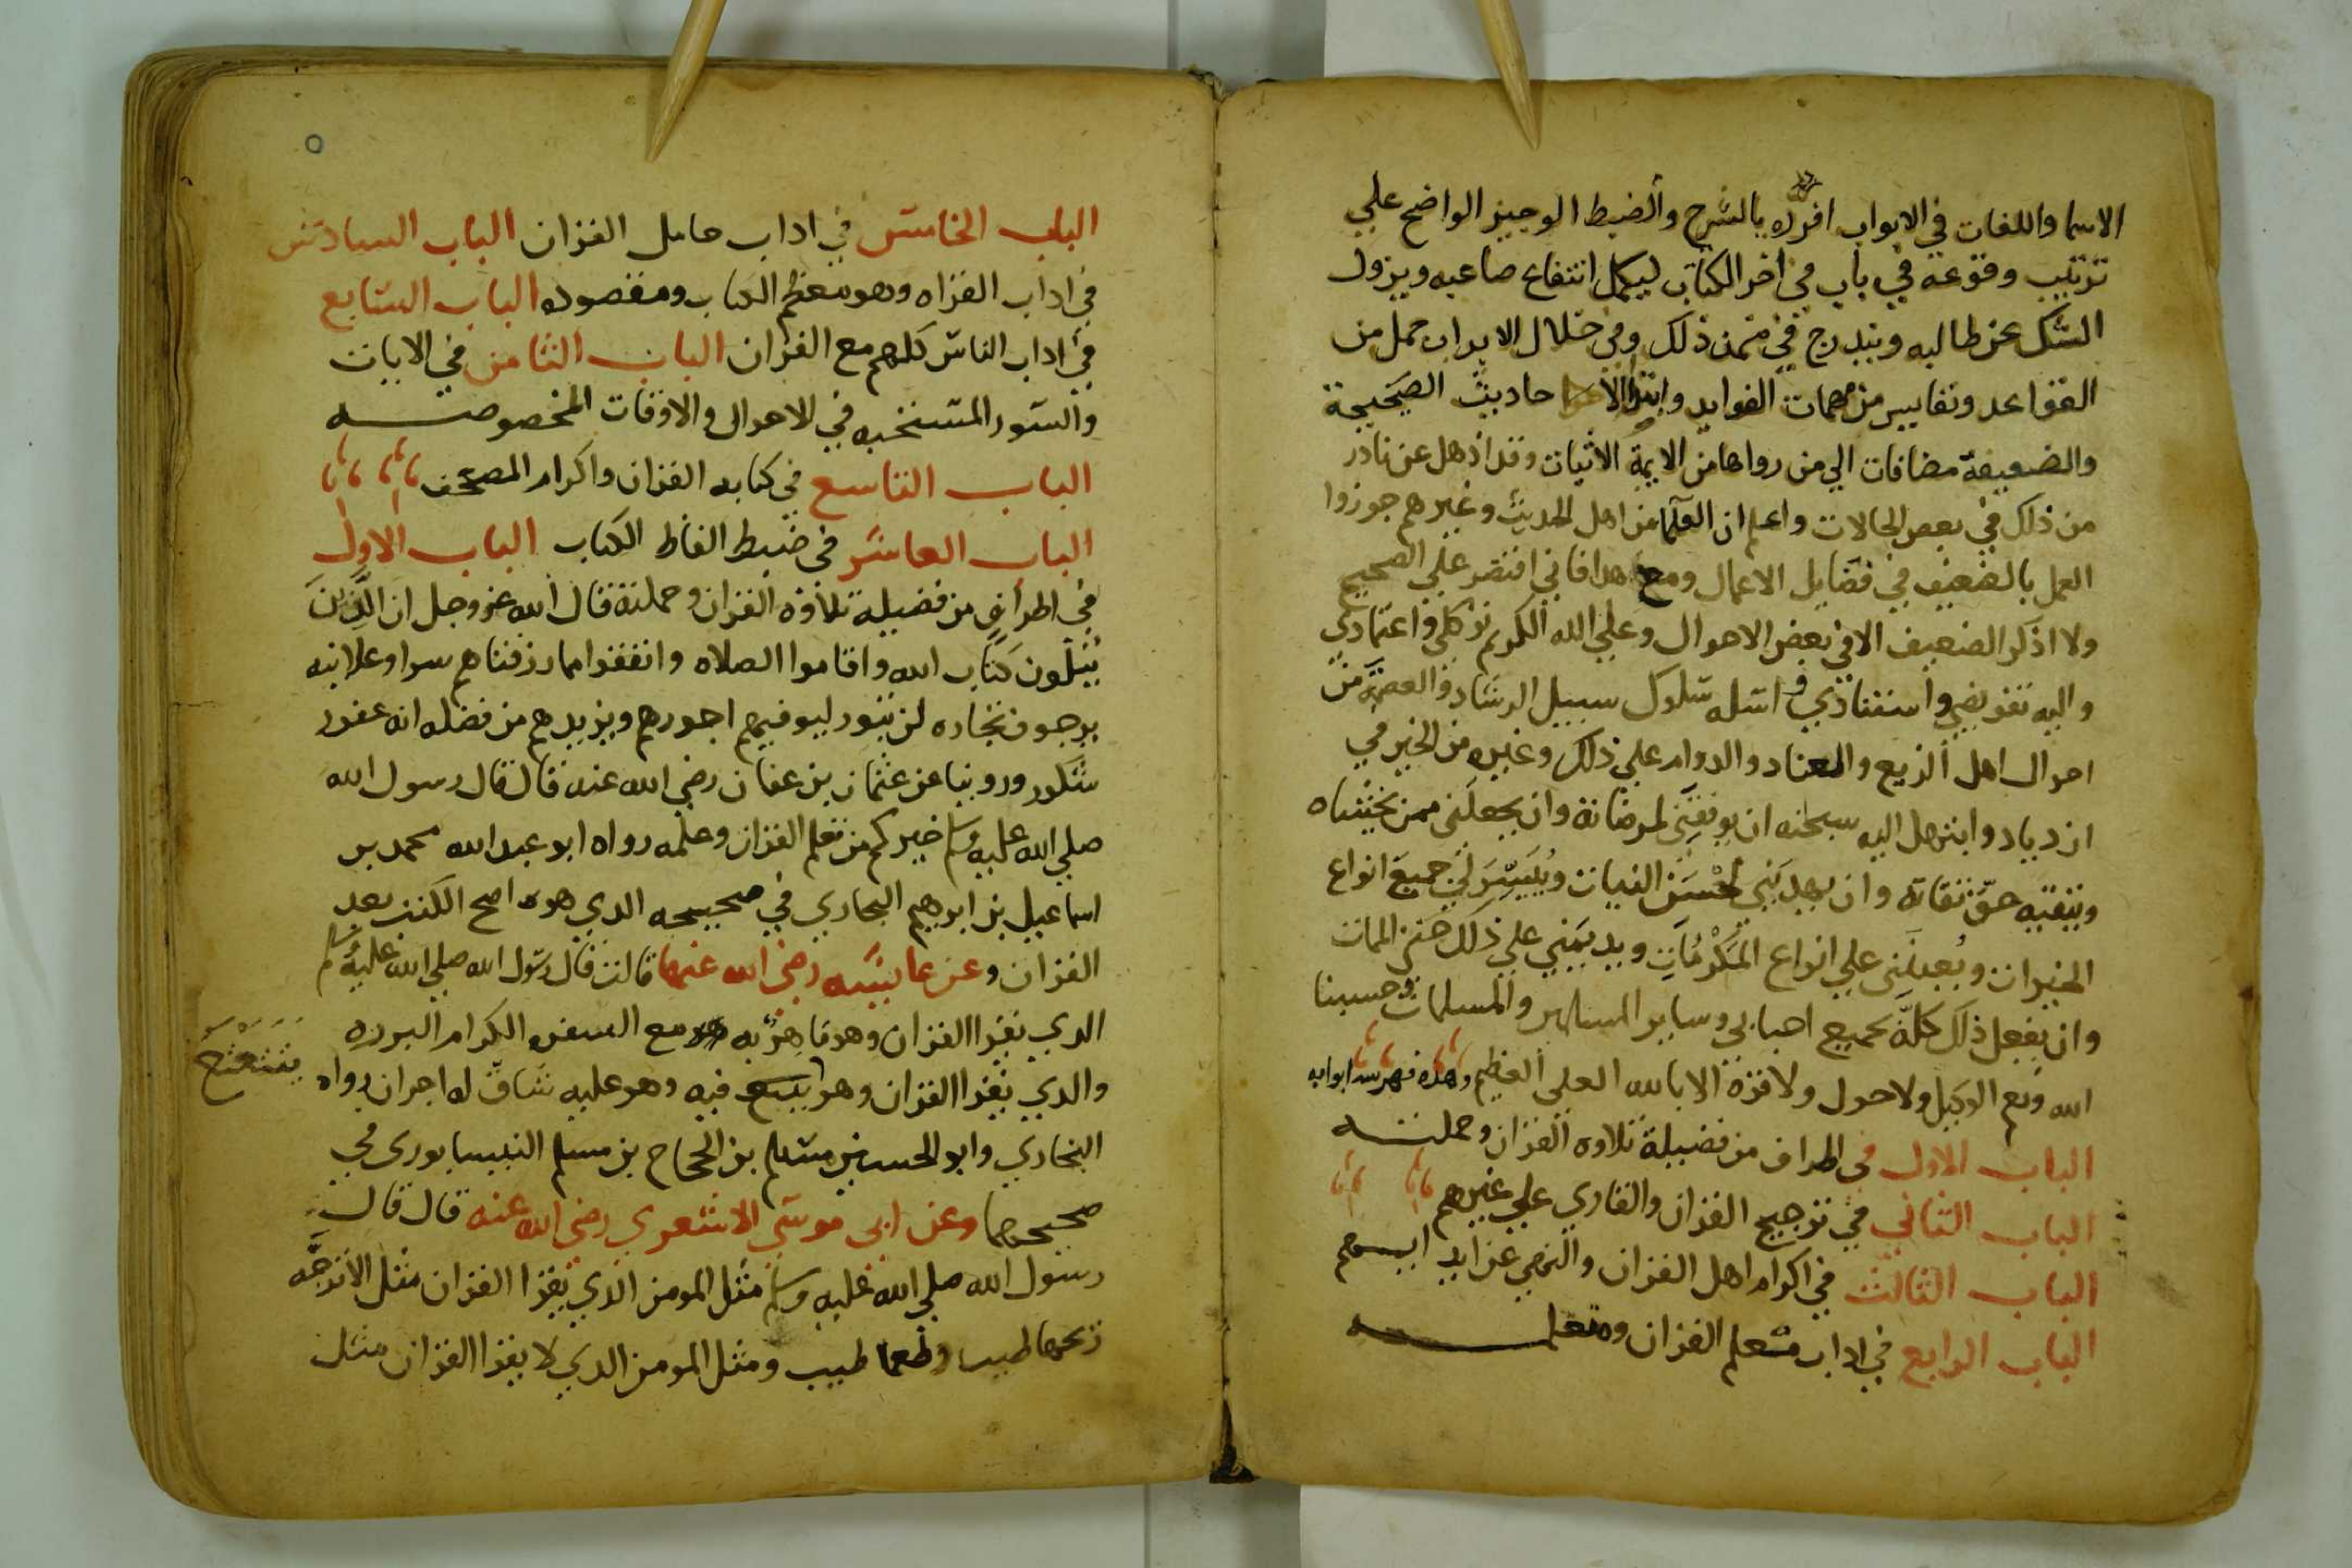 الاسما واللغات في الابواب افرده بالشرح والضبط الوجيز الواضح علي
ترتيب وقوعه في باب في اخر الكتاب ليكمل انتفاع صاحبه ويزول
الشك عن طالبه ويندرج في ضمن ذلك وفي خلال الابواب جمل من
القواعد ونفايس من مهمات الفوايد وابين الاحاديث الصحيحة
والضعيفة مضافات الي من رواها من الايمة الاثبات وقد اذهل عن نادر
من ذلك في بعض الحالات واعلم ان العلما من اهل الحديث وغيرهم جوزوا
العمل بالضعيف في فضايل الاعمال ومع هذا فاني اقتصر علي الصحيح
ولا اذكر الضعيف الا في بعض الاحوال وعلي الله الكريم توكلي واعتمادي
واليه تفويضي واستنادي واسله سلوك سبيل الرشاد والعصمة من
احوال اهل الزيغ والعناد والدوام علي ذلك وغيره من الخير في
ازدياد وابتهل اليه سبحنه ان يوفقني لمرضاته وان يجعلني ممن يخشاه
ويتقيه حق تقاته وان يهديني لحسن النيات وييسر لي جميع انواع
الخيرات ويعينني علي انواع المكرمات ويديمني علي ذلك حتى الممات
وان يفعل ذلك كله بجميع احبابي وساير المسلمين والمسلمات وحسبنا
الله ونعم الوكيل ولا حول ولا قوة الا بالله العلي العظيم وهذه فهرست ابوابه
الباب الاول في اطراف من فضيلة تلاوه القران وحملته
الباب الثاني في ترجيح القران والقاري علي غيرهم
الباب الثالث في اكرام اهل القران والنهي عن ايذايهم
الباب الرابع في اداب متعلم القران ومتعلمه
الباب الخامس في اداب حامل القران الباب السادس
في اداب القراه وهو معظم الكتاب ومقصوده الباب السابع
في اداب الناس كلهم مع القران الباب الثامن في الايات
والسور المستحبه في الاحوال والاوقات المخصوصه
الباب التاسع في كتابه القران واكرام المصحف
الباب العاشر في ضبط الفاظ الكتاب الباب الاول
في اطراف من فضيلة تلاوة القران وحملته قال الله عز وجل ان الذين
يتلون كتاب الله واقاموا الصلاه وانفقوا مما رزقناهم سرا وعلانيه
يرجون تجاره لن تبور ليوفيهم اجورهم ويزيدهم من فضله انه غفور
شكور وروينا عن عثمان بن عفان رضي الله عنه قال قال رسول الله
صلي الله عليه وسلم خيركم من تعلم القران وعلمه رواه ابو عبد الله محمد بن
اسماعيل بن ابرهيم البخاري في صحيحه الدي هوه اصح الكتب بعد
القران وعن عايشه رضي الله عنها قالت قال رسول الله صلي الله عليه وسلم
الدي يقرا القران وهو ماهر به مع السفره الكرام البرره
يتتعتع
والدي يقرا القران وهو فيه وهو عليه شاق له اجران رواه
البخاري وابو الحسين مسلم بن الحجاج بن مسلم النيسابوري في
صحيحهما وعن ابي موسي الاشعري رضي الله عنه قال قال
رسول الله صلي الله عليه وسلم مثل المومن الذي يقرا القران مثل الاترجه
ريحها طيب وطعمها طيب ومثل المومن الدي لا يقرا القران مثل